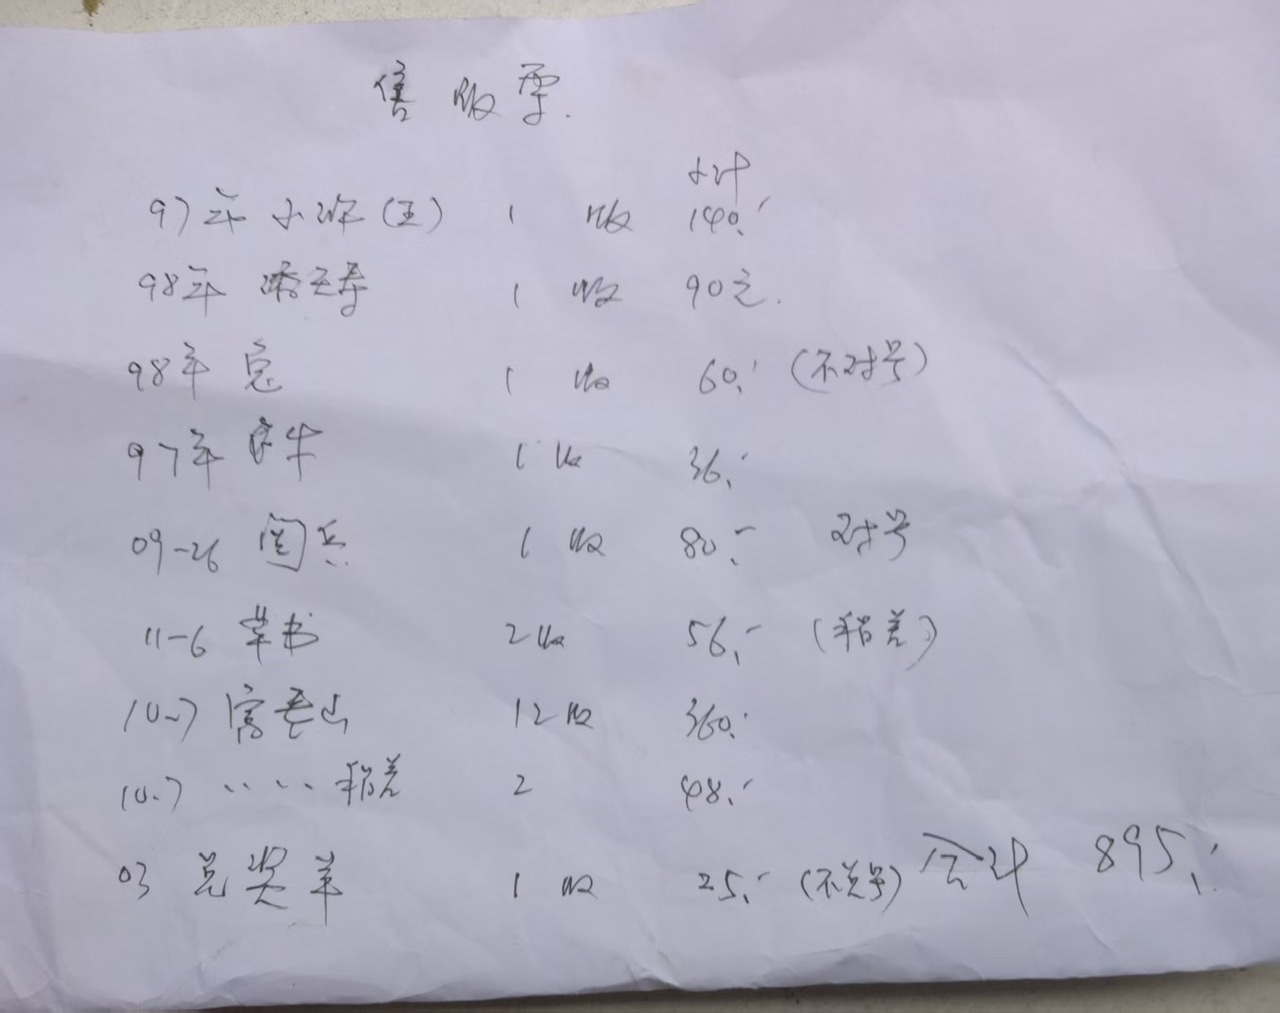 售版票.
小计
97年 小许(王) 1 版 140.
98年 潘天寿 1 版 90元.
98年 1 版 60. (不对号)
97年 牛 1 版 36.
09-26 阅兵 1 版 80.- 对号
11-6 草书 2版 56.- (稍差)
10.7 富春山 12版 360.
10.7 ‥ ‥ 稍差 2 48.-
03 兑奖羊 1 版 25.- (不兑号) 合计 895.